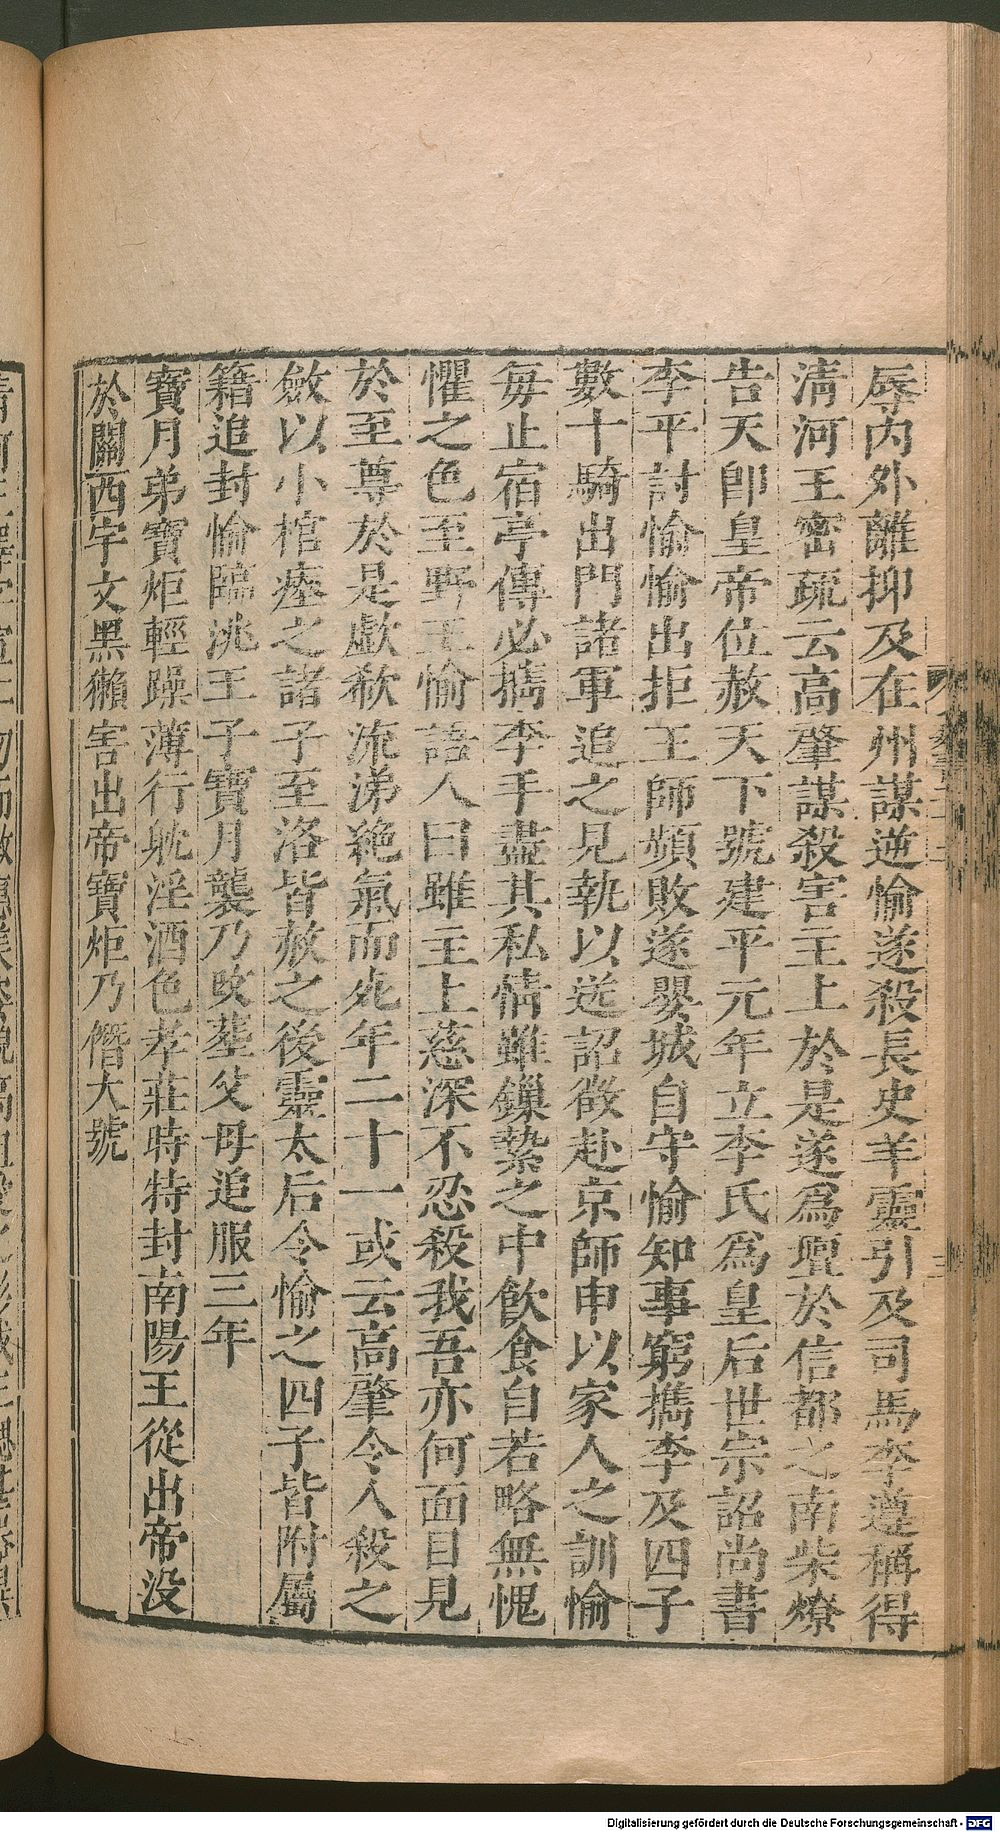 辱内外離抑及在州謀逆愉遂殺長史羊靈引及司馬李遵稱得
清河王密疏云高肇謀殺害主上於是遂爲壇於信都之南柴燎
告天卽皇帝位赦天下號建平元年立李氏爲皇后世宗詔尚書
李平討愉愉出拒王師頻敗遂嬰城自守愉知事窮攜李及四子
數十騎出門諸軍追之見執以送詔徵赴京師申以家人之訓愉
毎止宿亭傳必攜李手盡其私情雖鏁縶之中飲食自若略無愧
懼之色至野王愉語人曰雖主上慈深不忍殺我吾亦何面目見
於至尊於是歔欷流涕絶氣而死年二十一或云高肇令人殺之
斂以小棺瘞之諸子至洛皆赦之後靈太后令愉之四子皆附屬
籍追封愉臨洮王子寶月襲乃改葬父母追服三年
寶月弟寶炬輕躁薄行耽淫酒色孝莊時特封南陽王從出帝没
於關西宇文黑獺害出帝寶炬乃僭大號
Digitalisierung gefördert durch die Deutsche Forschungsgemeinschaft - DFG